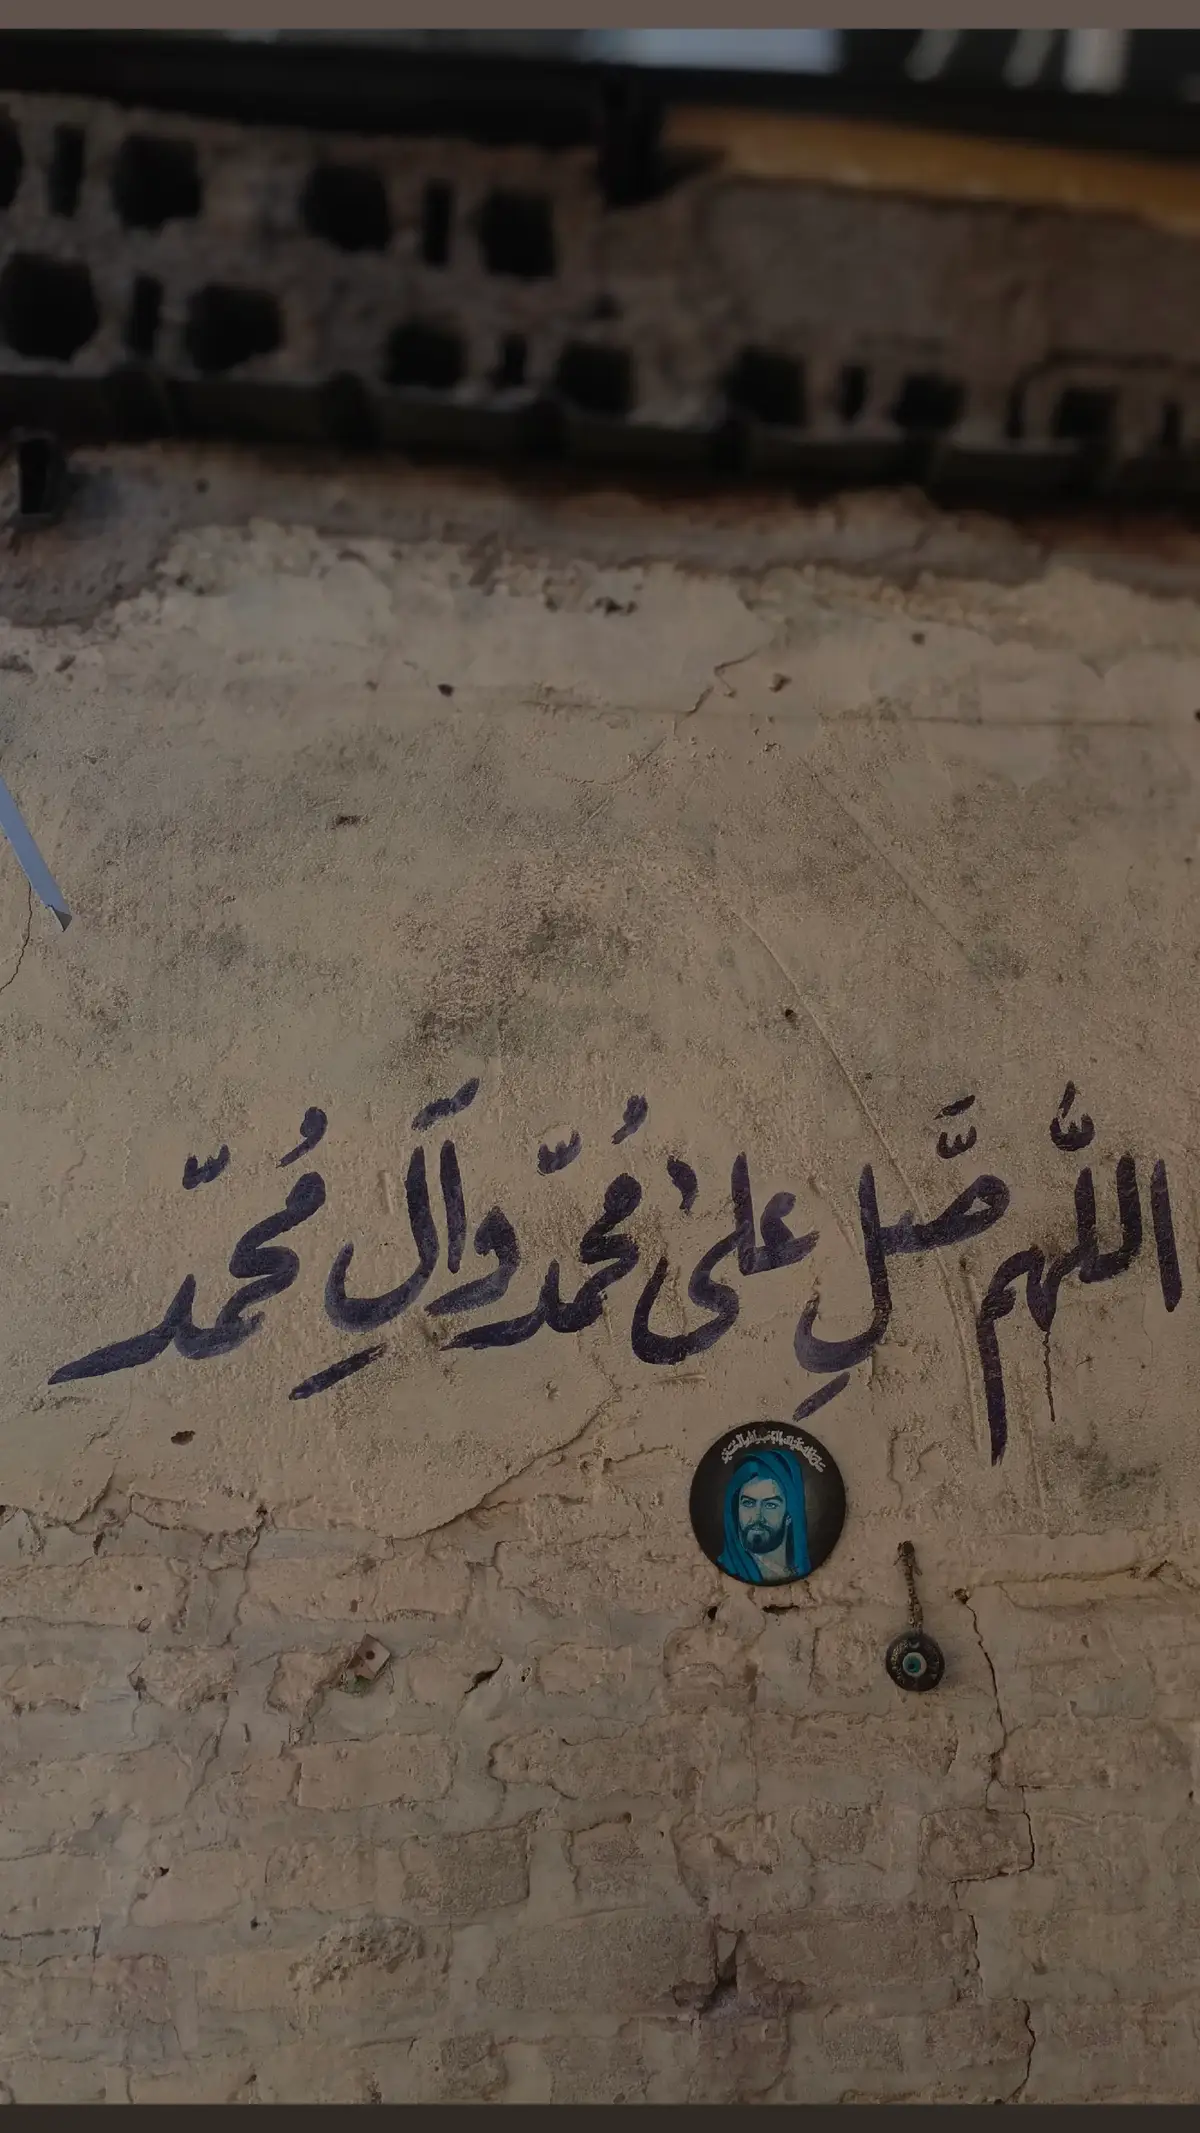 اللّٰهم صَّلِ علىٰ مُحمّد وآلِ مُحمِّد